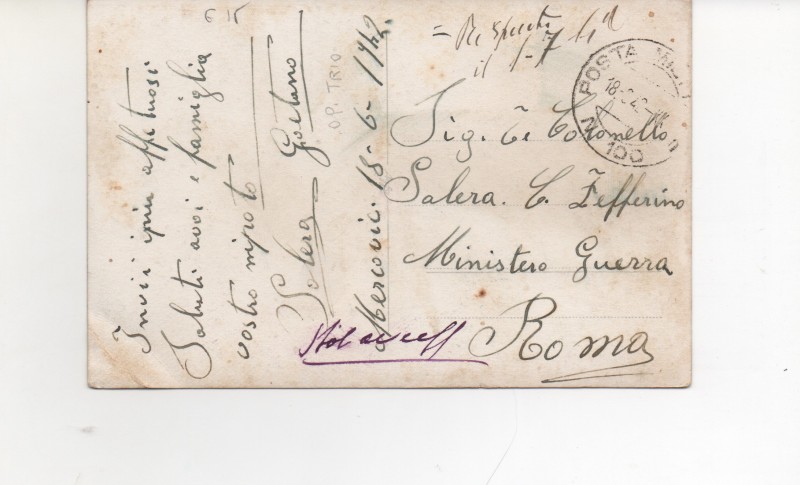 Invii i più affettuosi
Saluti a voi e famiglia
vostro nipote
Solera Gaetano
Mercovic. 18-6-1942
OP. TRIO
= Risposto
il 1-7
POSTA MIL
18-6-42
N. 100
Sig. Te Colonello
Salera. C. Zefferino
Ministero Guerra
Roma